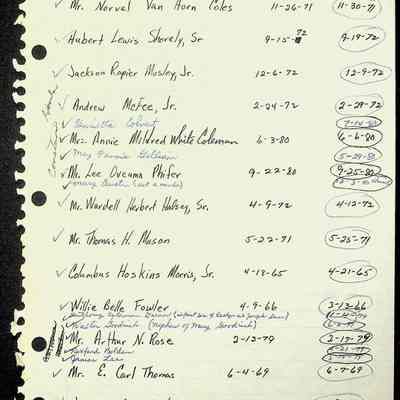 ✓ Mr. Norvel Van Horn Coles 11-26-71 11-30-71
✓ Hubert Lewis Shorely, Sr 9-15-72 9-19-72
✓ Jackson Rapier Mosley, Jr. 12-6-72 12-9-72
✓ Andrew McFee, Jr. 2-24-72 2-29-72
✓ Henrietta Colvert 7-14-80
✓ Mrs. Annie Mildred White Coleman 6-3-80 6-6-80
✓ Mrs Fannie 5-29-80
✓ Mr. Lee Oveama Phifer 9-22-80 9-25-80
✓ Mary Austin
✓ Mr. Wardell Herbert Halsey, Sr. 4-9-72 4-12-72
✓ Mr. Thomas H. Mason 5-22-71 5-25-71
✓ Columbus Hoskins Morris, Jr. 4-18-65 4-21-65
✓ Willie Belle Fowler 4-9-66 3-13-66
✓ Anthony (infant son of
✓ Walter Goodrich (Nephew of Mary Goodrich)
✓ Mr. Arthur N. Rose 2-13-79 2-17-79
✓ Holden
✓ James Lee
✓ Mr. E. Carl Thomas 6-4-69 6-7-69